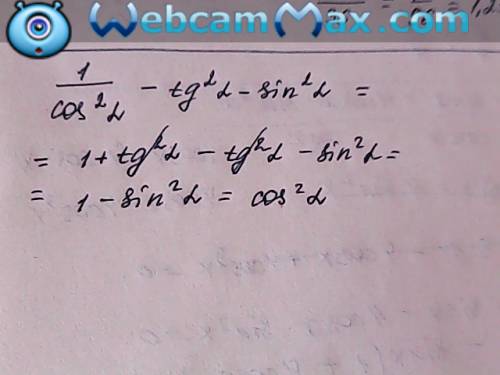 WebcamMax.com
1/cos²α − tg²α − sin²α =
= 1 + tg²α − tg²α − sin²α =
= 1 − sin²α = cos²α